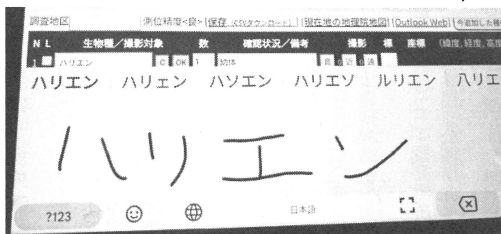 調査地区 測位精度<良> [保存 (CSVダウンロード)] [現在地の地理院地図] [Outlook Web]
N L 生物種/撮影対象 数 確認状況/備考 撮影 標 座標 (緯度, 経度, 高度
1 ハリエン C OK 1 幼体 近 遠
ハリエン ハリェン ハソエン ハリエソ ルリエン 八リエ
ハリエン
?123 日本語